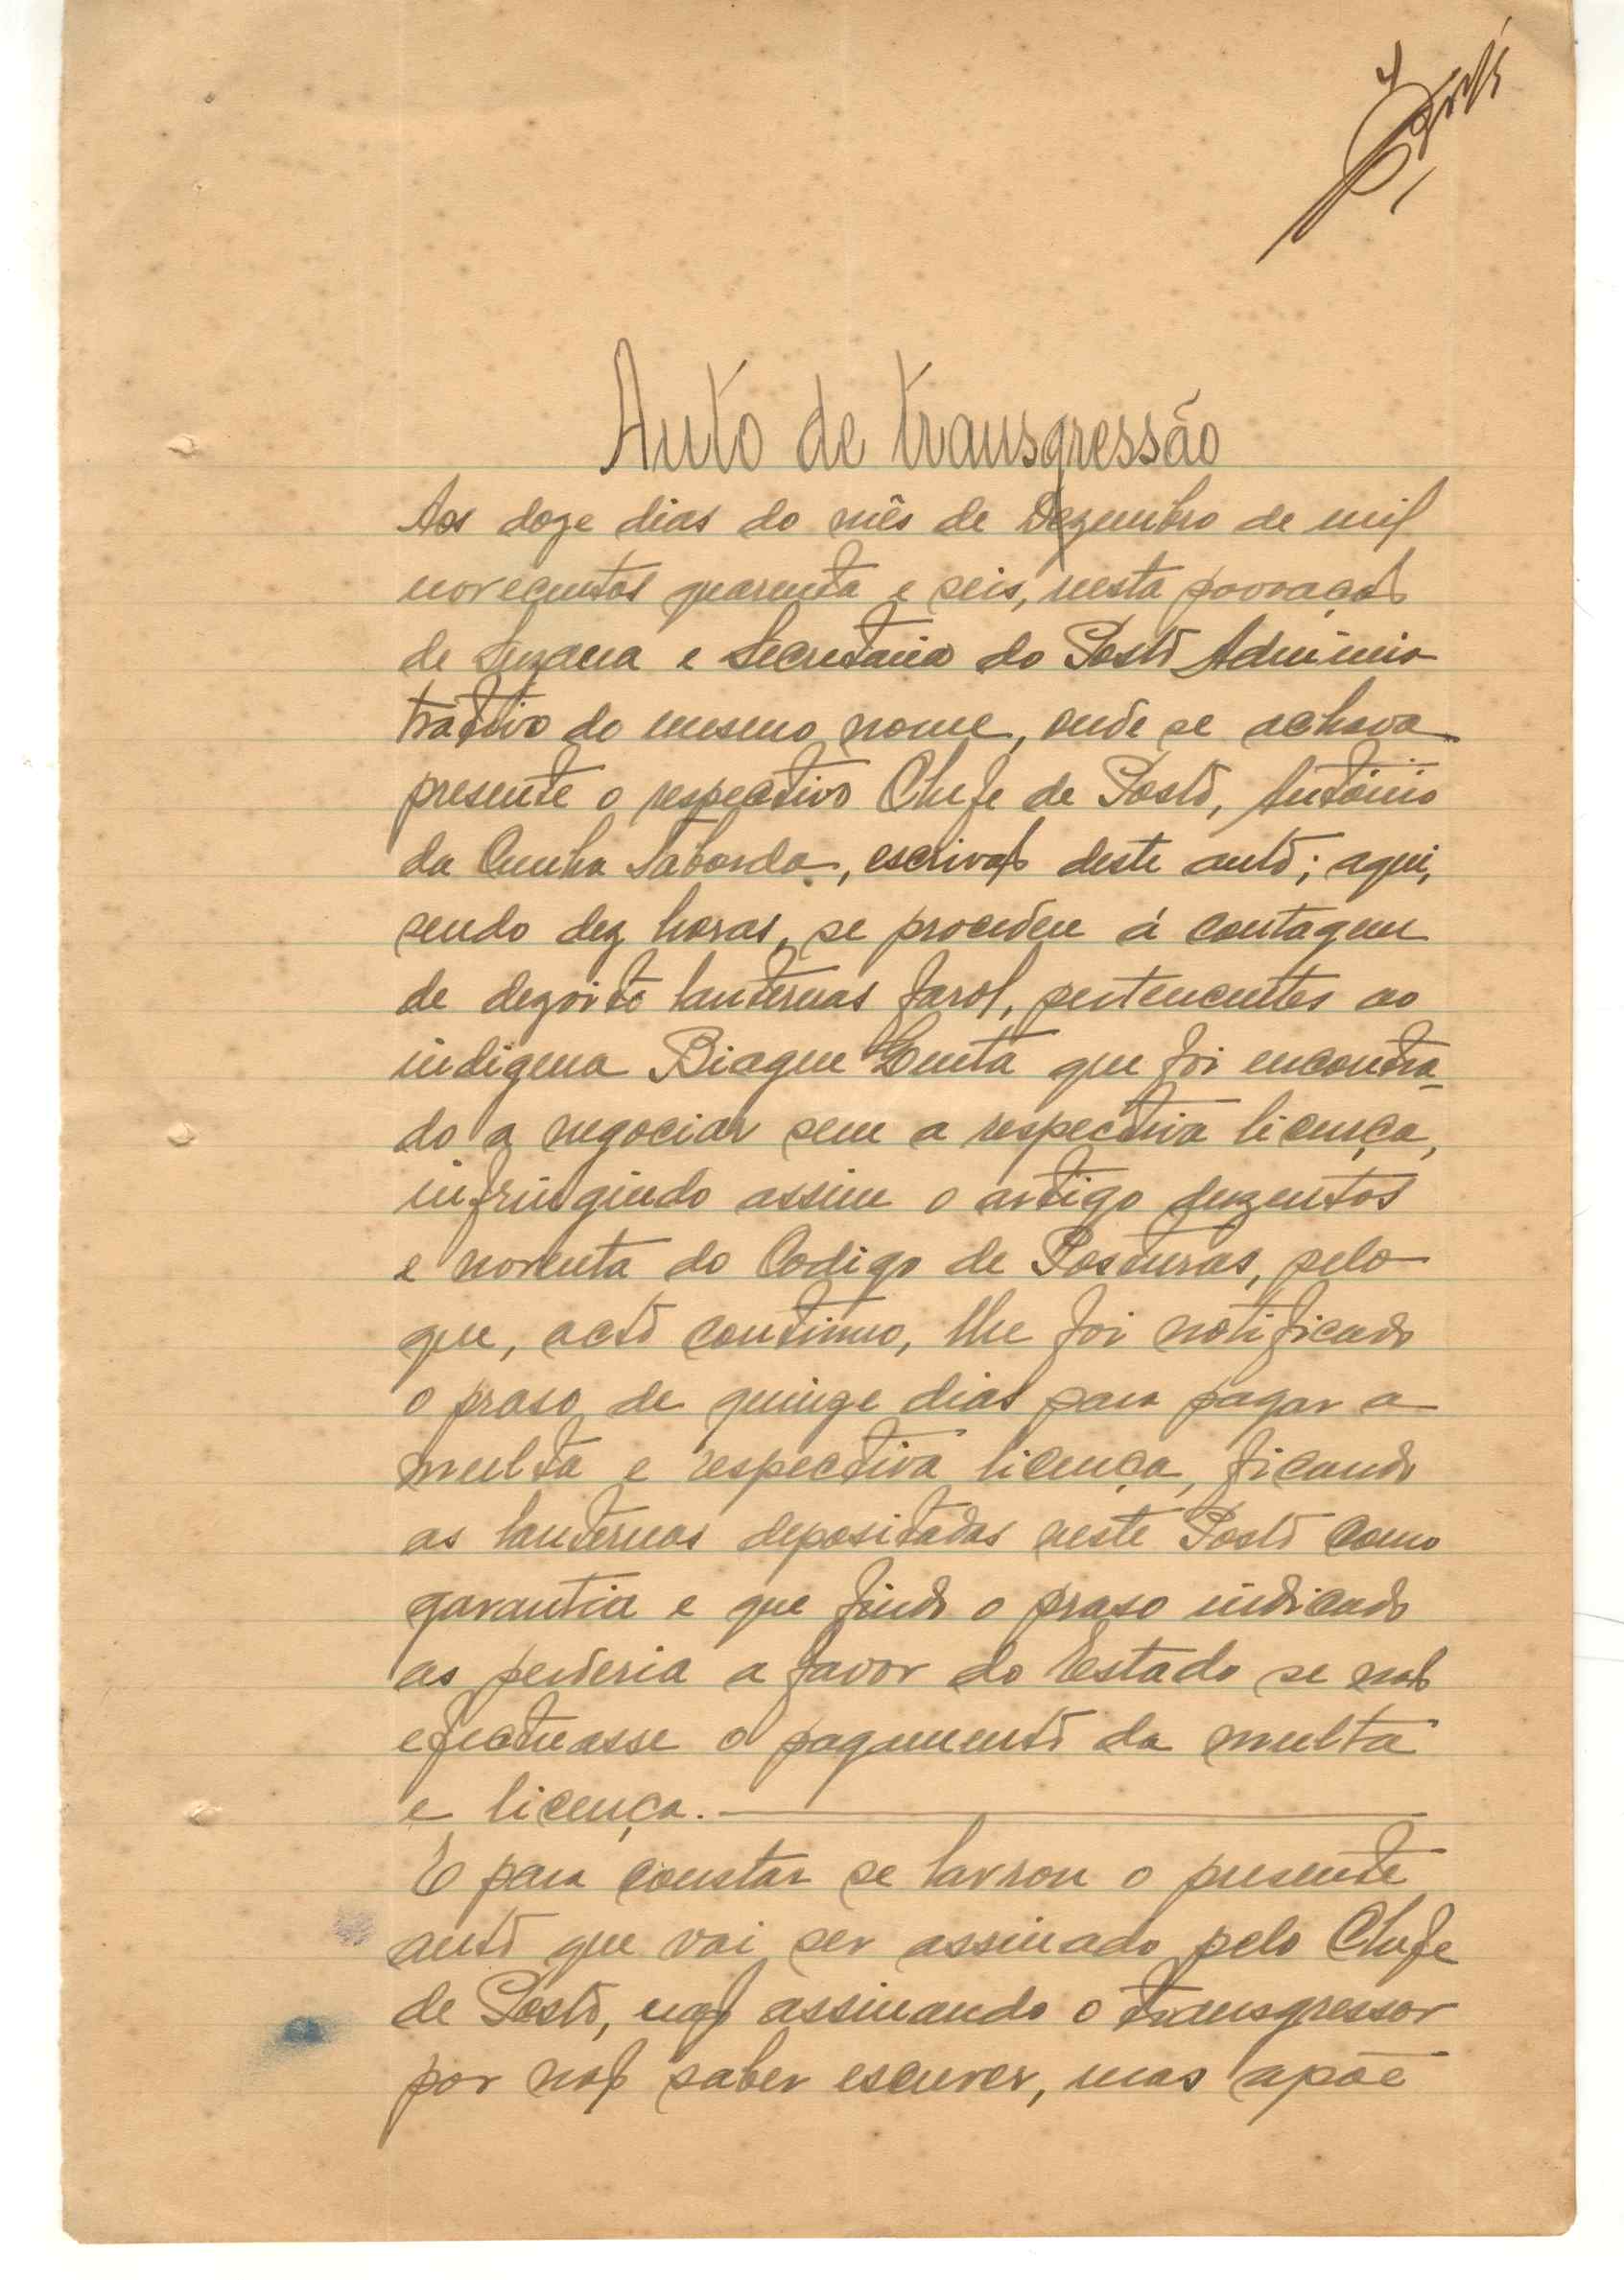 Auto de transgressão
Aos doze dias do mês de Dezembro de mil
novecentos quarenta e seis, nesta povoação
de Suzana e Secretaria do Posto Adminis-
trativo do mesmo nome, onde se achava
presente o respectivo Chefe de Posto, António
da Cunha Saborda, escrivão deste auto; aqui,
sendo dez horas, se procedeu á contagem
de dezoito lanternas farol, pertencentes ao
indigena Biague que foi encontra-
do a negociar sem a respectiva licença,
infringindo assim o artigo duzentos
e noventa do Codigo de Posturas, pelo
que, acto continuo, lhe foi notificado
o praso de quinze dias para pagar a
multa e respectiva licença, ficando
as lanternas depositadas neste Posto como
garantia e que findo o praso indicado
as perderia a favor do Estado se não
efectuasse o pagamento da multa
e licença.
E para constar se lavrou o presente
auto que vai ser assinado pelo Chefe
de Posto, não assinando o transgressor
por não saber escrever, mas apõe